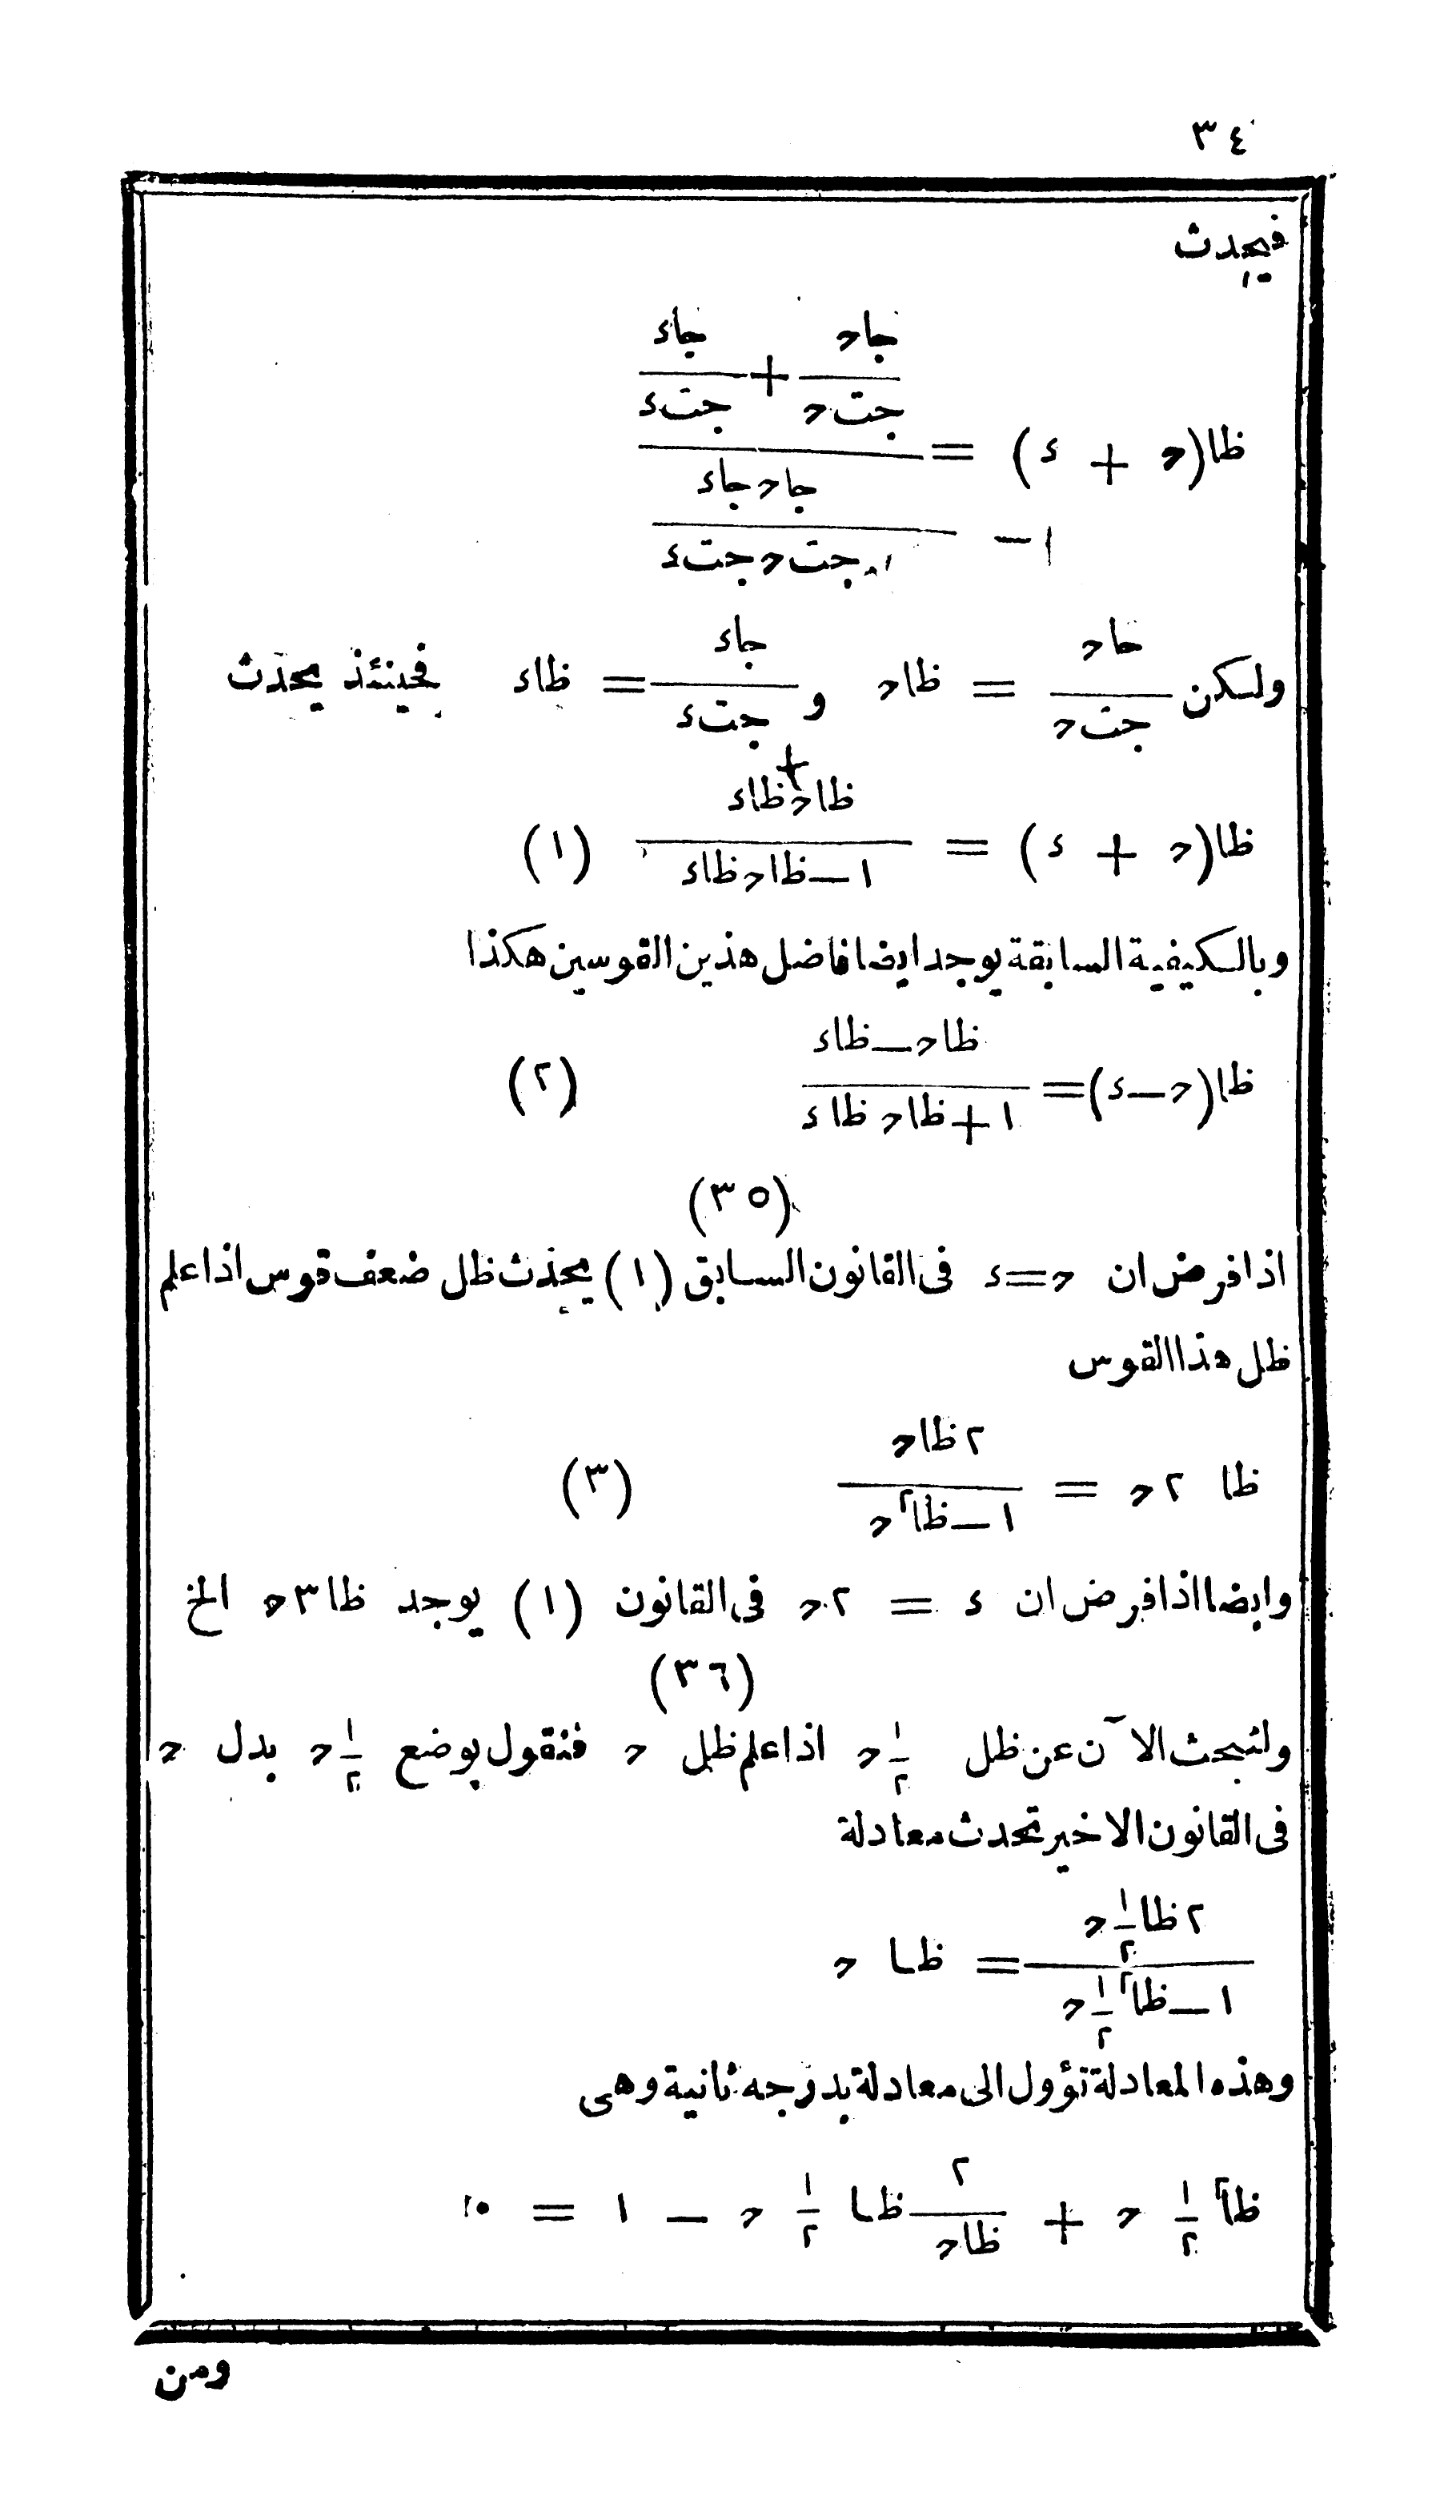 ٣٤
فيحدث
ظا(ه + ء) = (جاه/جته + جاء/جتء) / (١ − جاه جاء/جته جتء)
ولكن جاه/جته = ظاه و جاء/جتء = ظاء فحينئذ يحدث
ظا(ه + ء) = (ظاه + ظاء)/(١ − ظاه ظاء) (١)
وبالكيفية السابقة يوجد ايضا فاضل هذين القوسين هكذا
ظا(ه − ء) = (ظاه − ظاء)/(١ + ظاه ظاء) (٢)
(٣٥)
اذا فرض ان ه = ء فى القانون السابق (١) يحدث ظل ضعف قوس اذا علم
ظل هذا القوس
ظا ٢ه = ٢ظاه/(١ − ظا٢ه) (٣)
وايضا اذا فرض ان ء = ٢ه فى القانون (١) يوجد ظا٣ه الخ
(٣٦)
ولنبحث الآن عن ظل ١/٢ ه اذا علم ظل ه فنقول بوضع ١/٢ ه بدل ه
فى القانون الاخير تحدث معادلة
٢ظا ١/٢ ه/(١ − ظا٢ ١/٢ ه) = ظا ه
وهذه المعادلة تؤول الى معادلة بدرجه ثانية وهى
ظا٢ ١/٢ ه + ٢/ظاه ظا ١/٢ ه − ١ = ٠
ومن